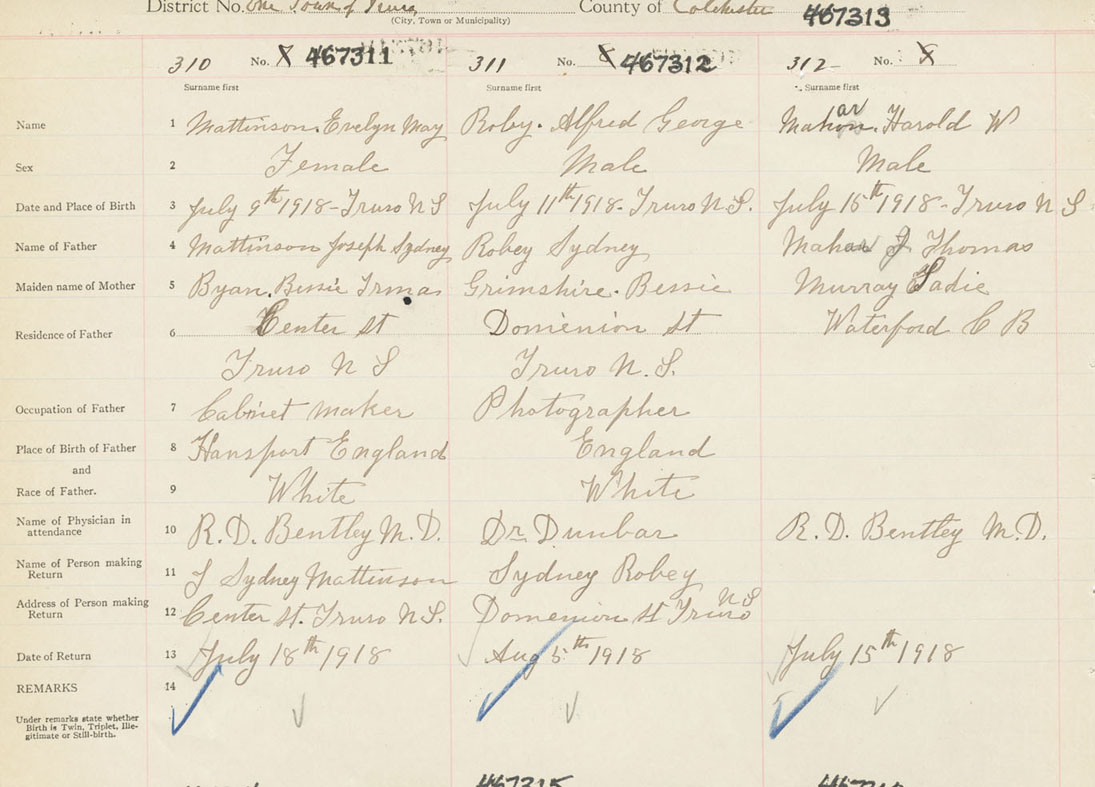 District No. One Town of Truro County of Colchester 467313
(City, Town or Municipality)
310 No. 467311 311 No. 467312 312 No.
Surname first Surname first Surname first
Name 1 Mattinson. Evelyn May Roby. Alfred George Mahar. Harold W
Sex 2 Female Male Male
Date and Place of Birth 3 July 9th 1918 - Truro N S July 11th 1918 - Truro N.S. July 15th 1918 - Truro N S
Name of Father 4 Mattinson Joseph Sydney Robey Sydney Mahar J Thomas
Maiden name of Mother 5 Byan. Bessie Irmas Grimshire. Bessie Murray Sadie
Residence of Father 6 Center St Domenion St Waterford C B
Truro N S Truro N.S.
Occupation of Father 7 Cabinet maker Photographer
Place of Birth of Father 8 Hansport England England
and
Race of Father. 9 White White
Name of Physician in attendance 10 R.D. Bentley M.D. Dr. Dunbar R.D. Bentley M.D.
Name of Person making Return 11 J Sydney Mattinson Sydney Robey
Address of Person making Return 12 Center St. Truro N.S. Domenion St Truro N S
Date of Return 13 July 18th 1918 Aug 5th 1918 July 15th 1918
REMARKS 14
Under remarks state whether
Birth is Twin, Triplet, Ille-
gitimate or Still-birth.
467315